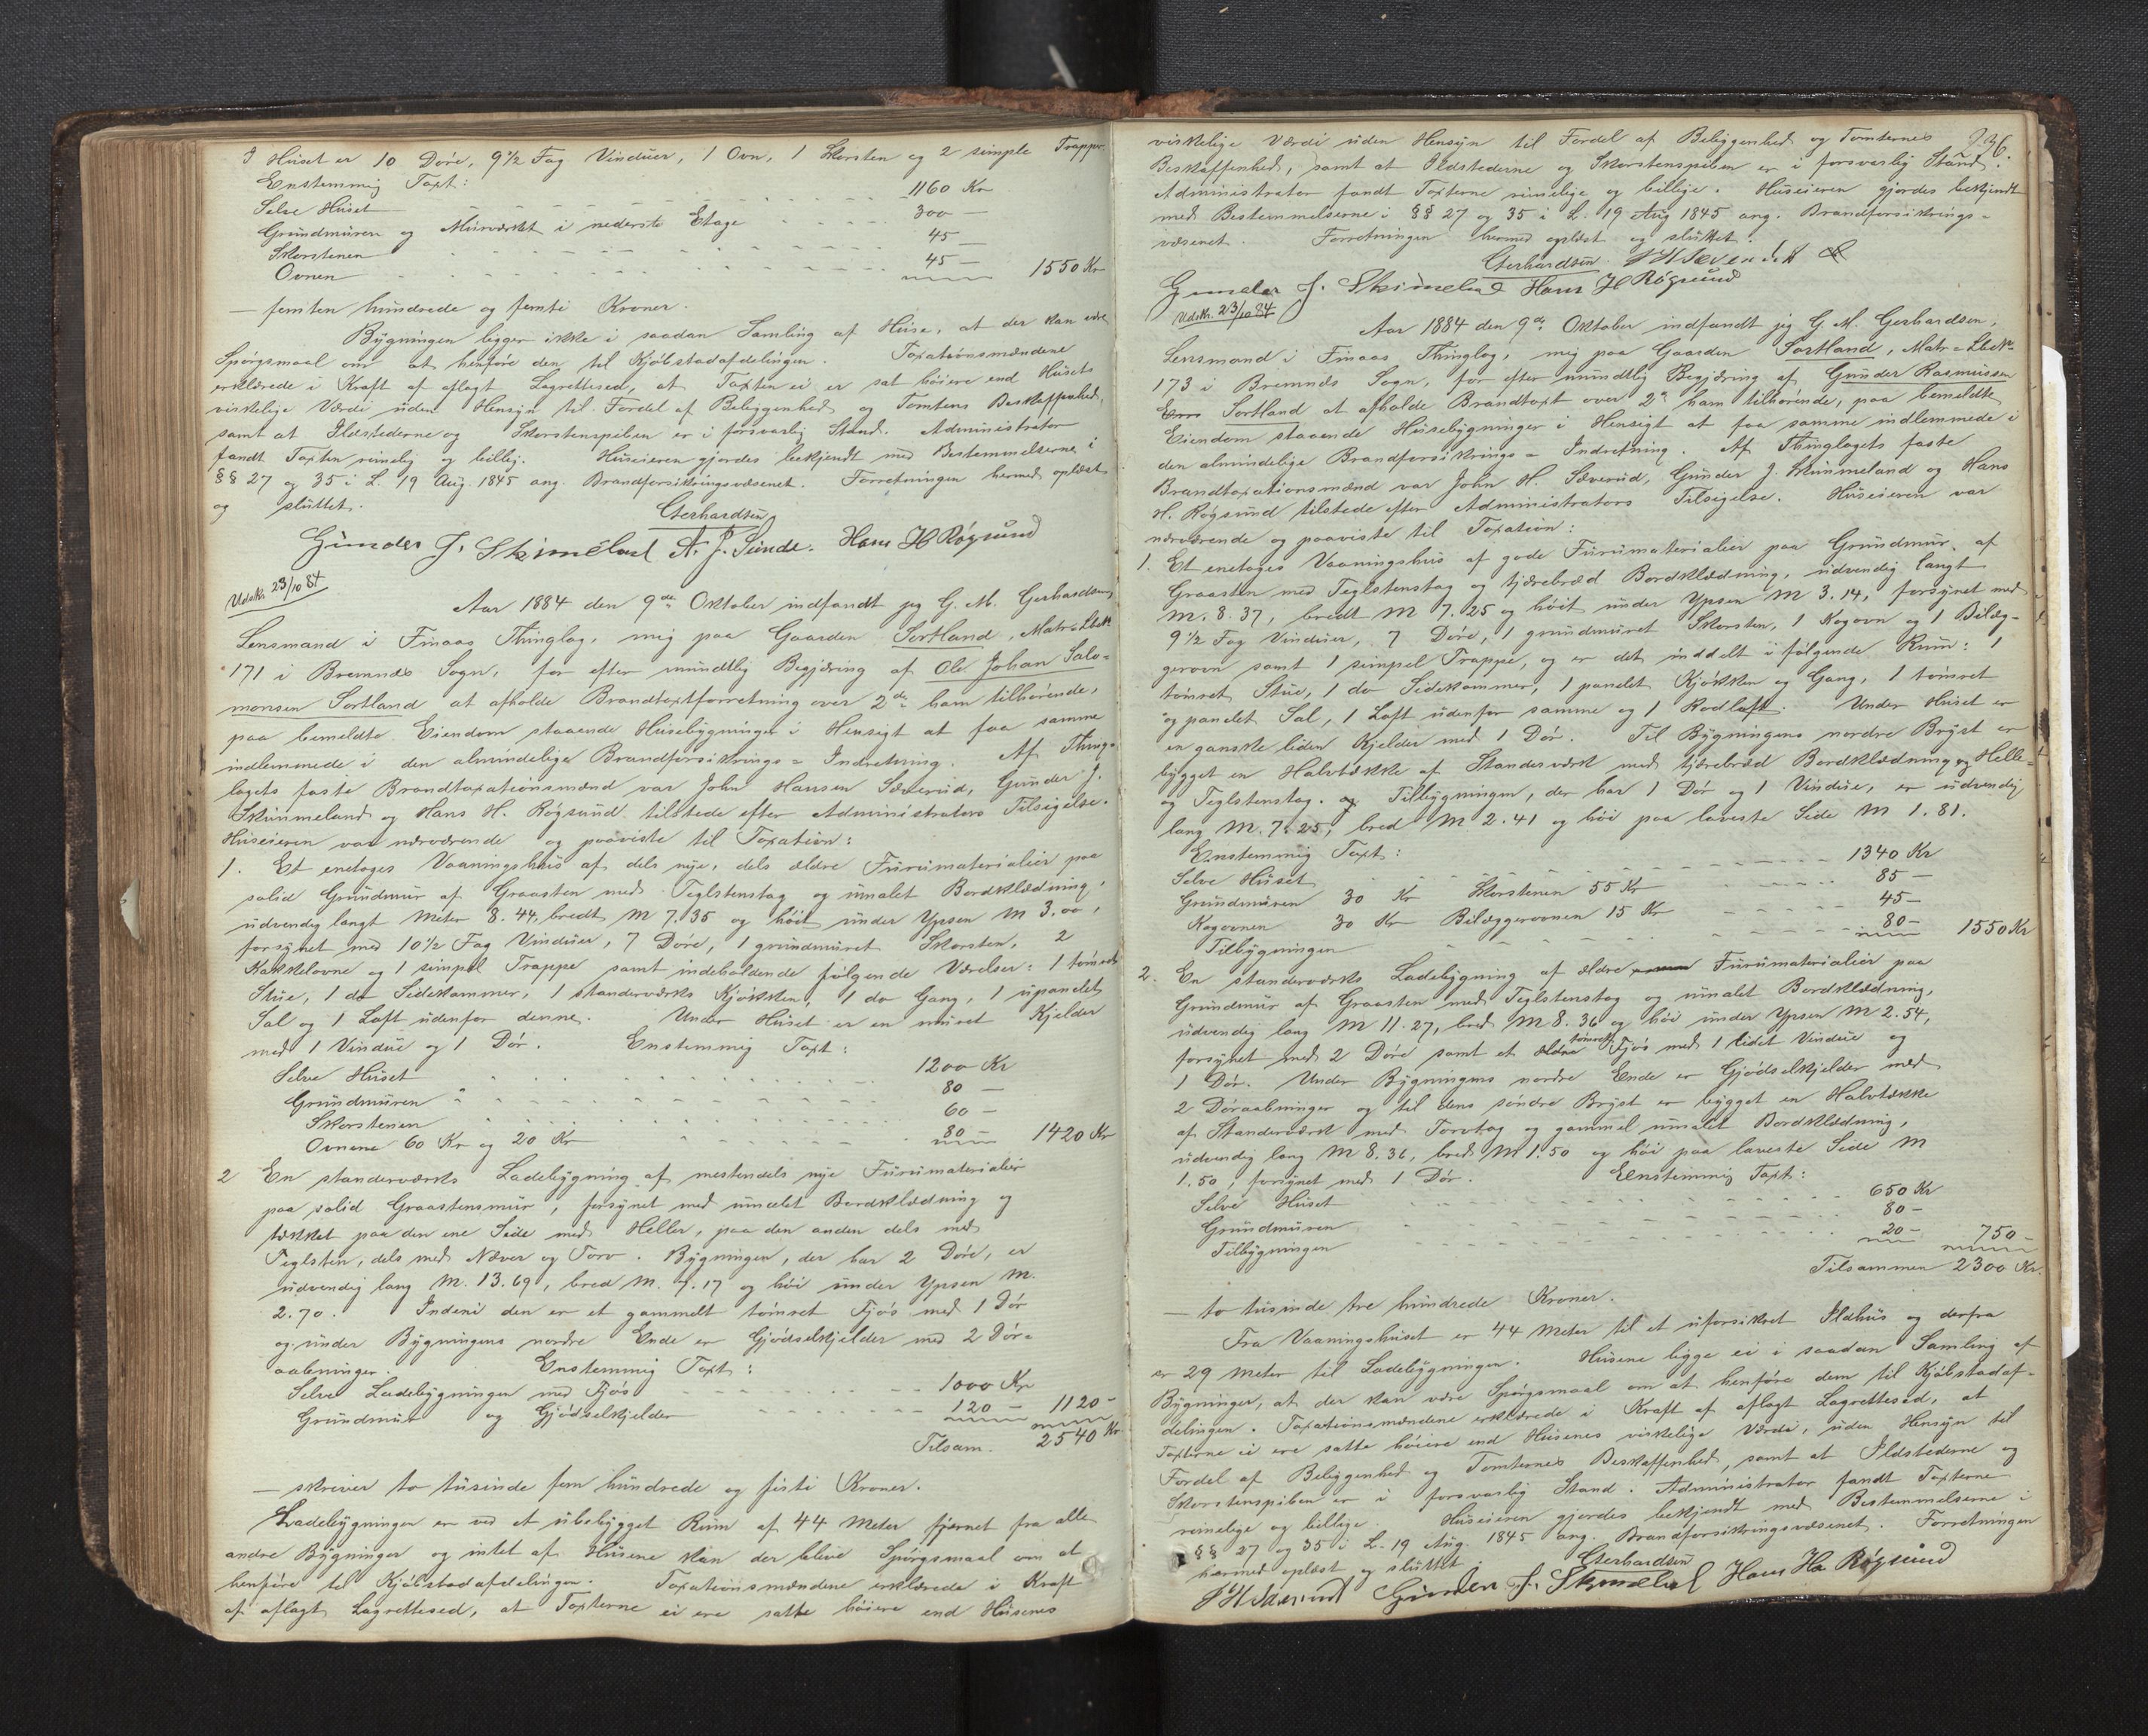 I Huset er 10 Døre, 9 1/2 Fag Vinduer, 1 Ovn, 1 Skorsten og 2 simple Trapper.
Enstemmig Taxt:
Selve Huset 1160 Kr
Grundmuren og Murværket i nederste Etage 300 —
Skorstenen 45 —
Ovnen 45 — 1550 Kr
— femten hundrede og femti Kroner.
Bygningen ligger ikke i saadan Samling af Huse, at der kan være
Spørgsmaal om at henføre den til Kjøbstadafdelingen. Taxationsmændene
erklærede i Kraft af aflagt Lagrettesed, at Taxten ei er sat høiere end Husets
virkelige Værdi uden Hensyn til Fordel af Beliggenhed og Tomtens Beskaffenhed,
samt at Ildstederne og Skorstenspiben er i forsvarlig Stand. Administrator
fandt Taxten rimelig og billig. Huseieren gjordes bekjendt med Bestemmelserne i
§§ 27 og 35 i L. 19 Aug. 1845 ang. Brandforsikringsvæsenet. Forretningen hermed oplæst
og sluttet.
Gerhardsen
Gunder J. Skimelad A. J. Sunde. Hans H Røgsund
Udskr. 23/10 84
Aar 1884 den 9de Oktober indfandt jeg G. M. Gerhardsen,
Lensmand i Finaas Thinglag, mig paa Gaarden Sortland, Matr=Lbn
171 i Bremnæs Sogn, for efter mundtlig Begjæring af Ole Johan Salo=
monsen Sortland at afholde Brandtaxtforretning over 2de ham tilhørende,
paa bemeldte Eiendom staaende Husebygninger i Hensigt at faa samme
indlemmede i den almindelige Brandforsikrings=Indretning. Af Thing=
lagets faste Brandtaxationsmænd var John Hansen Sæverud, Gunder J.
Skimmeland og Hans H. Røgsund tilstede efter Administrators Tilsigelse.
Huseieren var nærværende og paaviste til Taxation:
1. Et enetages Vaaningshus af dels nye, dels ældre Furumaterialier paa
solid Grundmur af Graasten med Teglstenstag og umalet Bordklædning,
udvendig langt Meter 8.44, bredt M 7.35 og høit under Ypsen M 3.00,
forsynet med 10 1/2 Fag Vinduer, 7 Døre, 1 grundmuret Skorsten, 2
Kakkelovne og 1 simpel Trappe samt indeholdende følgende Værelser: 1 tømret
Stue, 1 do Sidekammer, 1 standerværks Kjøkken, 1 do Gang, 1 upanelet
Sal og 1 Loft udenfor denne. Under Huset er en muret Kjelder
med 1 Vindue og 1 Dør. Enstemmig Taxt:
Selve Huset 1200 Kr
Grundmuren 80 —
Skorstenen 60 —
Ovnene 60 Kr og 20 Kr 80 — 1420 Kr
2 En standerværks Ladebygning af mestendels nye Furumaterialier
paa solid Graastensmur, forsynet med umalet Bordklædning og
tækket paa den ene Side med Heller, paa den anden dels med
Teglsten, dels med Næver og Torv. Bygningen, der har 2 Døre, er
udvendig lang M. 13.69, bred M. 7.17 og høi under Ypsen M.
2.70. Indeni den er et gammelt tømret Fjøs med 1 Dør
og under Bygningens nordre Ende er Gjødselkjelder med 2 Dør=
aabninger. Enstemmig Taxt:
Selve Ladebygningen med Fjøs 1000 Kr
Grundmur og Gjødselkjelder 120 — 1120 —
Tilsam. 2540 Kr
— skriver to tusinde fem hundrede og firti Kroner.
Ladebygningen er ved et ubebygget Rum af 44 Meter fjernet fra alle
andre Bygninger og intet af Husene kan der blive Spørgsmaal om at
henføre til Kjøbstadafdelingen. Taxationsmændene erklærede i Kraft
af aflagt Lagrettesed, at Taxterne ei ere satte høiere end Husenes
336.
virkelige Værdi uden Hensyn til Fordel af Beliggenhed og Tomternes
Beskaffenhed, samt at Ildstederne og Skorstenspiben er i forsvarlig Stand.
Administrator fandt Taxterne rimelige og billige. Huseieren gjordes bekjendt
med Bestemmelserne i §§ 27 og 35 i L. 19 Aug 1845 ang. Brandforsikrings=
væsenet. Forretningen hermed oplæst og sluttet.
Gerhardsen
Gunder J. Skimelad Hans H Røgsund
Udskr. 23/10 84
Aar 1884 den 9de Oktober indfandt jeg G. M. Gerhardsen,
Lensmand i Finaas Thinglag, mig paa Gaarden Sortland, Matr=Lbn
173 i Bremnæs Sogn, for efter mundtlig Begjæring af Gunder Rasmussen
Sortland at afholde Brandtaxt over 2de ham tilhørende, paa bemeldte
Eiendom staaende Husebygninger i Hensigt at faa samme indlemmede i
den almindelige Brandforsikrings=Indretning. Af Thinglagets faste
Brandtaxationsmænd var John H. Sæverud, Gunder J. Skimmeland og Hans
H. Røgsund tilstede efter Administrators Tilsigelse. Huseieren var
nærværende og paaviste til Taxation:
1. Et enetages Vaaningshus af gode Furumaterialier paa Grundmur af
Graasten med Teglstenstag og tjærebræd Bordklædning, udvendig langt
M. 8.37, bredt M 7.25 og høit under Ypsen M 3.14, forsynet med
9 1/2 Fag Vinduer, 7 Døre, 1 grundmuret Skorsten, 1 Kogovn og 1 Bilæg=
gerovn samt 1 simpel Trappe, og er det inddelt i følgende Rum: 1
tømret Stue, 1 do Sidekammer, 1 panelet Kjøkken og Gang, 1 tømret
og panelet Sal, 1 Loft udenfor samme og 1 Rodloft. Under Huset er
en ganske liden Kjelder med 1 Dør. Til Bygningens nordre Bryst er
bygget en Halvtække af Standerværk med tjærebræd Bordklædning og Helle=
og Teglstenstag. og Tilbygningen, der har 1 Dør og 1 Vindue, er udvendig
lang M. 7.25, bred M 2.41 og høi paa laveste Side M 1.81.
Enstemmig Taxt:
Selve Huset 1340 Kr
Grundmuren 30 Kr Skorstenen 55 Kr 85 —
Kogovnen 30 Kr Bilæggerovnen 15 Kr 45 —
Tilbygningen 80 — 1550 Kr
2. En standerværks Ladebygning af ældre Furumaterialier paa
Grundmur af Graasten med Teglstenstag og umalet Bordklædning,
udvendig lang M 11.27, bred M 8.36 og høi under Ypsen M 2.54,
forsynet med 2 Døre samt et tømret Fjøs med 1 lidet Vindue og
1 Dør. Under Bygningens nordre Ende er Gjødselkjelder med
2 Døraabninger og til dens søndre Bryst er bygget en Halvtække
af Standerværk med Torvtag og gammel umalet Bordklædning,
udvendig lang M 8.36, bred M 1.50 og høi paa laveste Side M
1.50, forsynet med 1 Dør. Enstemmig Taxt:
Selve Huset 650 Kr
Grundmuren 80 —
Tilbygningen 20 — 750 —
Tilsammen 2300 Kr.
— to tusinde tre hundrede Kroner.
Fra Vaaningshuset er 44 Meter til et uforsikret Ildhus og derfra
er 29 Meter til Ladebygningen. Husene ligge ei i saadan Samling af
Bygninger, at der kan være Spørgsmaal om at henføre dem til Kjøbstadaf=
delingen. Taxationsmændene erklærede i Kraft af aflagt Lagrettesed, at
Taxterne ei ere satte høiere end Husenes virkelige Værdi, uden Hensyn til
Fordel af Beliggenhed og Tomternes Beskaffenhed, samt at Ildstederne og
Skorstenspiben er i forsvarlig Stand. Administrator fandt Taxterne
rimelige og billige. Huseieren gjordes bekjendt med Bestemmelserne i
§§ 27 og 35 i L. 19 Aug. 1845 ang. Brandforsikringsvæsenet. Forretningen
hermed oplæst og sluttet
Gerhardsen
J H Sæverud Gunder J. Skimelad Hans Ha Røgsund